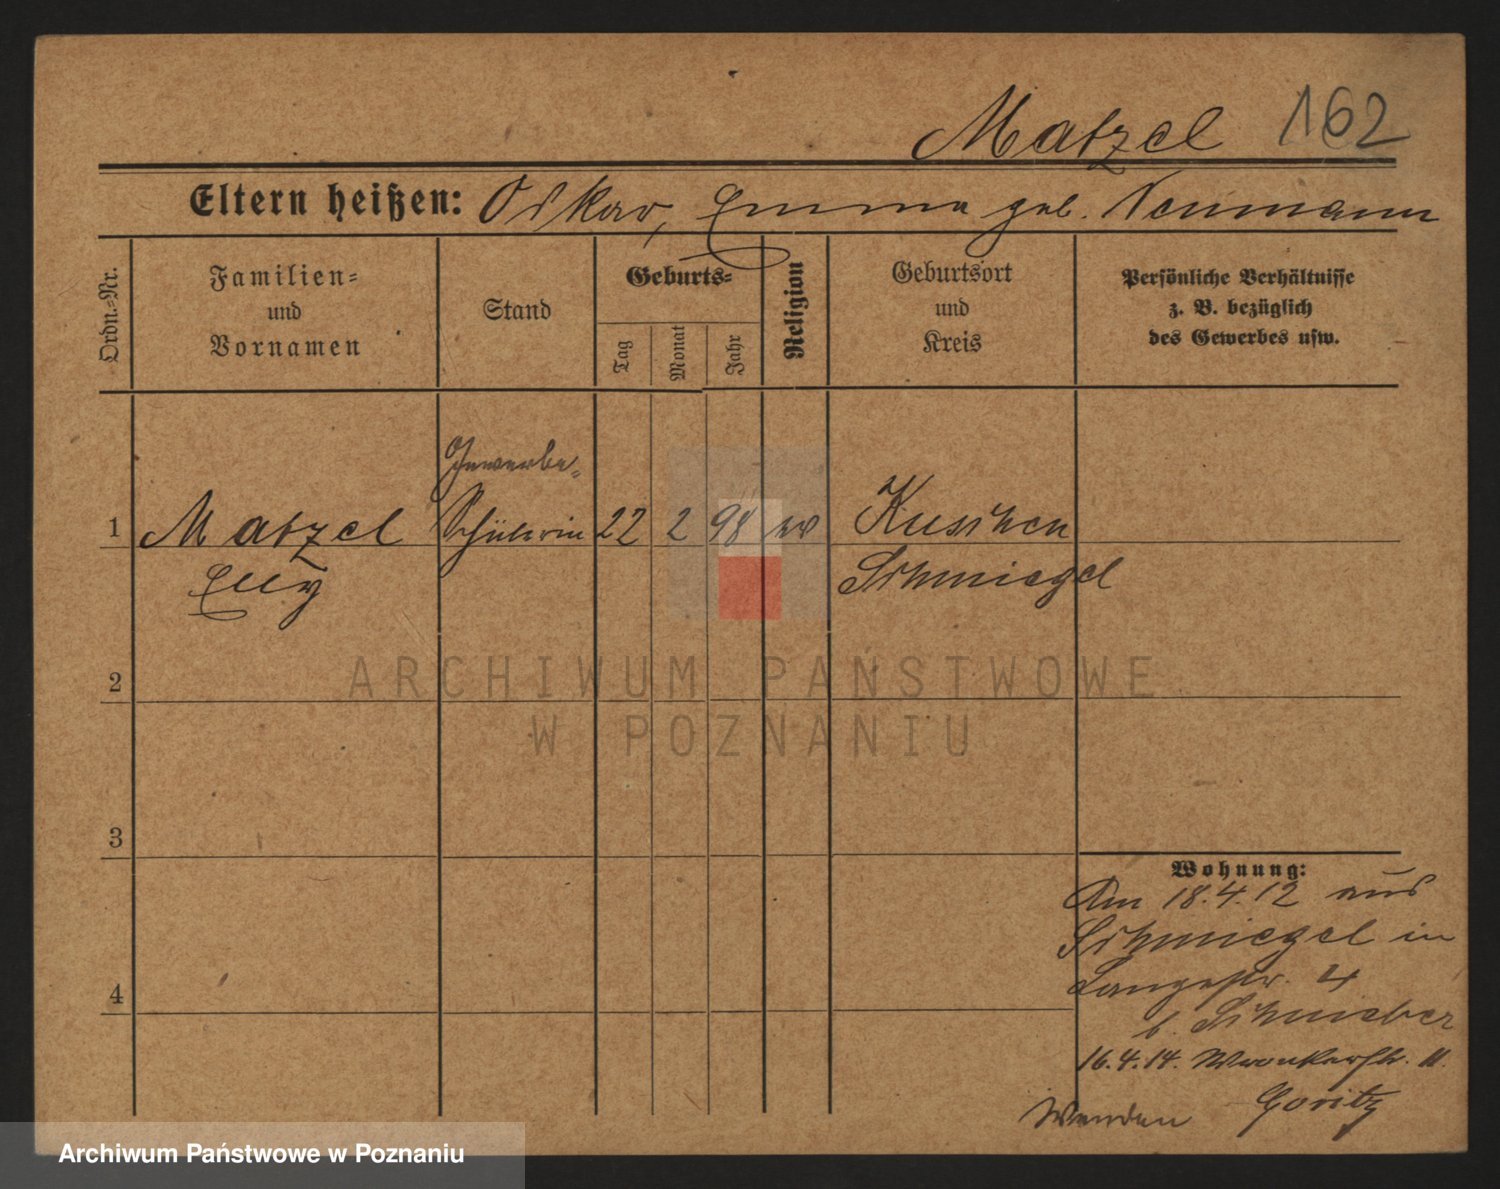 Matzel 162
Eltern heißen: Oskar, Emma geb. Neumann
Ordn.-Nr.
Familien-
und
Vornamen
Stand
Geburts-
Tag
Monat
Jahr
Religion
Geburtsort
und
Kreis
Persönliche Verhältnisse
z. B. bezüglich
des Gewerbes usw.
Gewerbe-
1 Matzel Schülerin 22 2 98 ev Kuschen
Elly Schmiegel
2
3
4
Wohnung:
Am 18.4.12 aus
Schmiegel in
Langestr. 4
b. Schnieber
16.4.14. Wronkerstr. 11.
Wenden Goritz
ARCHIWUM PAŃSTWOWE
W POZNANIU
Archiwum Państwowe w Poznaniu